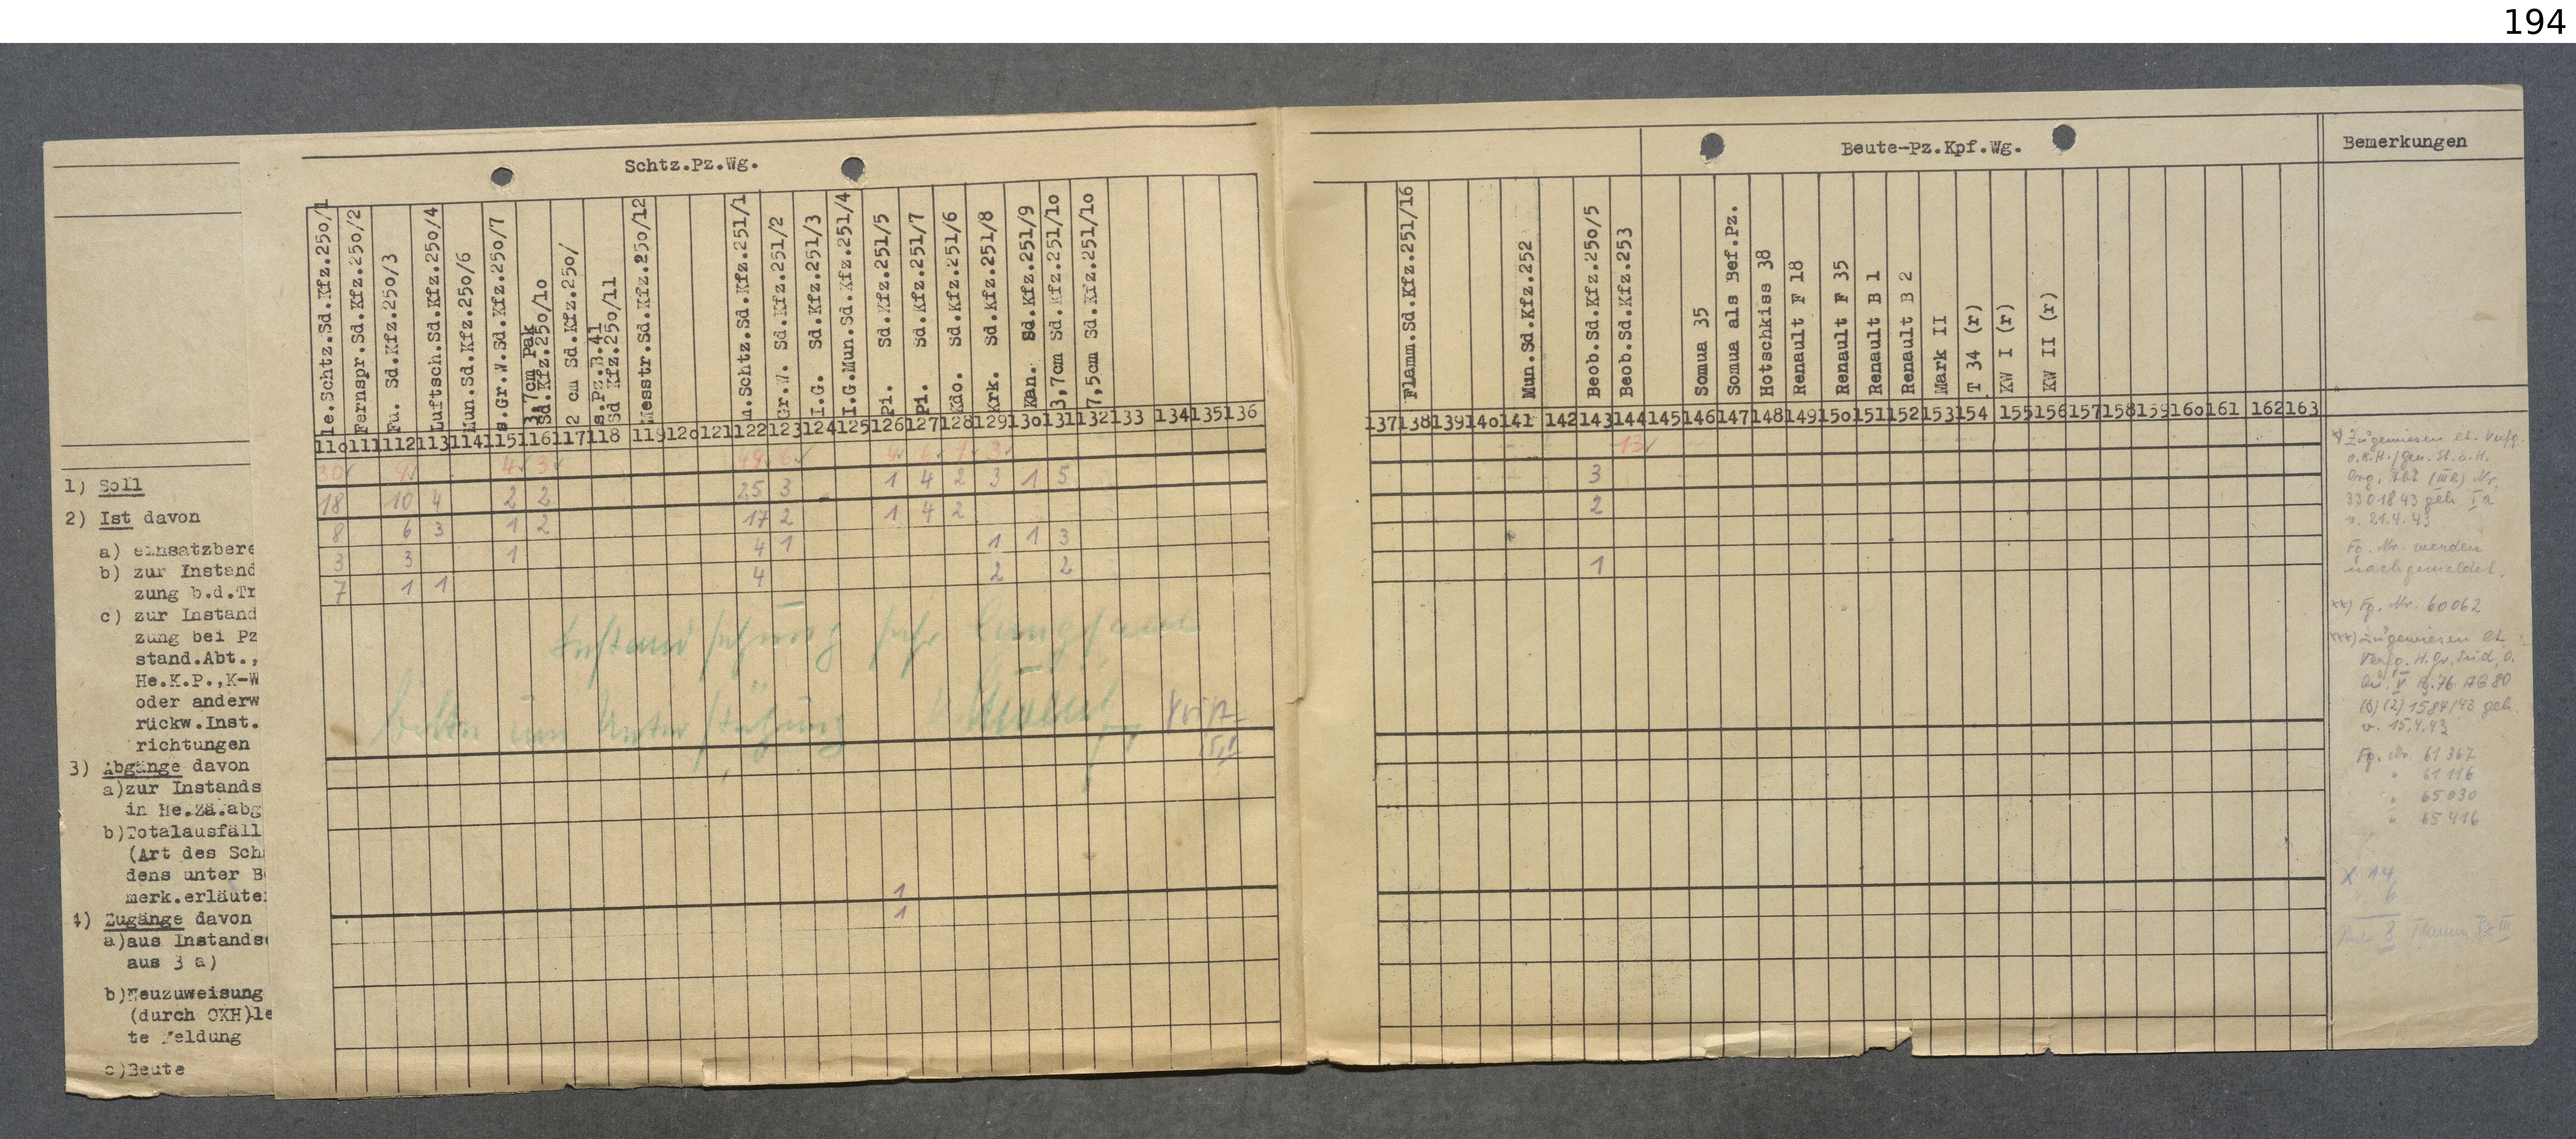 194
Schtz.Pz.Wg.
Beute-Pz.Kpf.Wg.
Bemerkungen
le.Schtz.Sd.Kfz.25o/1
Fernspr.Sd.Kfz.25o/2
Fu. Sd.Kfz.25o/3
Luftsch.Sd.Kfz.25o/4
Mun.Sd.Kfz.25o/6
s.Gr.W.Sd.Kfz.25o/7
3,7cm Pak
Sd.Kfz.25o/1o
2 cm Sd.Kfz.25o/
s.Pz.B.41
Sd Kfz.25o/11
Messtr.Sd.Kfz.25o/12
m.Schtz.Sd.Kfz.251/1
Gr.W. Sd.Kfz.251/2
I.G. Sd.Kfz.251/3
I.G.Mun.Sd.Kfz.251/4
Pi. Sd.Kfz.251/5
Pi. Sd.Kfz.251/7
Kdo. Sd.Kfz.251/6
Krk. Sd.Kfz.251/8
Kan. Sd.Kfz.251/9
3,7cm Sd.Kfz.251/1o
7,5cm Sd.Kfz.251/1o
Flamm.Sd.Kfz.251/16
Mun.Sd.Kfz.252
Beob.Sd.Kfz.25o/5
Beob.Sd.Kfz.253
Somua 35
Somua als Bef.Pz.
Hotschkiss 38
Renault F 18
Renault F 35
Renault B 1
Renault B 2
Mark II
T 34 (r)
KW I (r)
KW II (r)
11o 111 112 113 114 115 116 117 118 119 12o 121 122 123 124 125 126 127 128 129 13o 131 132 133 134 135 136
137 138 139 14o 141 142 143 144 145 146 147 148 149 15o 151 152 153 154 155 156 157 158 159 16o 161 162 163
1) Soll
30 4 3 6 3 13
2) Ist davon
18 10 4 2 2 25 3 1 4 2 3 1 5 3
a) einsatzbere
8 6 3 1 2 17 2 1 4 2 2
b) zur Instand
zung b.d.Tr
3 3 1 4 1 1 1 3
c) zur Instand
zung bei Pz
stand.Abt.,
He.K.P.,K-W
oder anderw
rückw.Inst.
richtungen
7 1 1 4 2 2 1
Instandsetzung sehr langsam
bitte um Unterstützung
3) Abgänge davon
a)zur Instands
in He.Zä.abg
b)Totalausfäll
(Art des Sch
dens unter B
merk.erläute
4) Zugänge davon
1
a)aus Instands
aus 3 a)
1
b)Neuzuweisung
(durch OKH)le
te Meldung
c)Beute
x) Zugewiesen lt. Verfg.
O.K.H./Gen.St.d.H.
Org. Abt (III) Nr.
33018 43 geh. Ia
v. 21.4.43
Fg. Nr. werden
nachgemeldet.
xx) Fg. Nr. 60062
xxx) Zugewiesen lt.
Verfg. H.Gr. Süd, O.
1584/43 geh.
v. 15.4.43
Fg. Nr. 61 367
" 61 116
" 65 030
" 65 416
x 14
6
8 Flamm Pz III